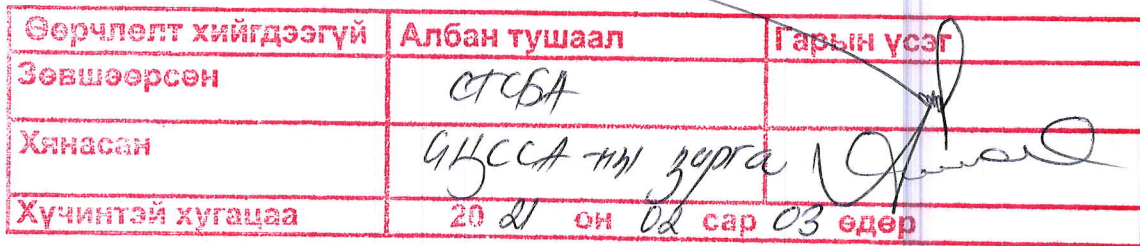 Өөрчлөлт хийгдээгүй Албан тушаал Гарын үсэг
Зөвшөөрсөн СТСБА
Хянасан ЦССА-ны дарга
Хүчинтэй хугацаа 20 21 он 02 сар 03 өдөр